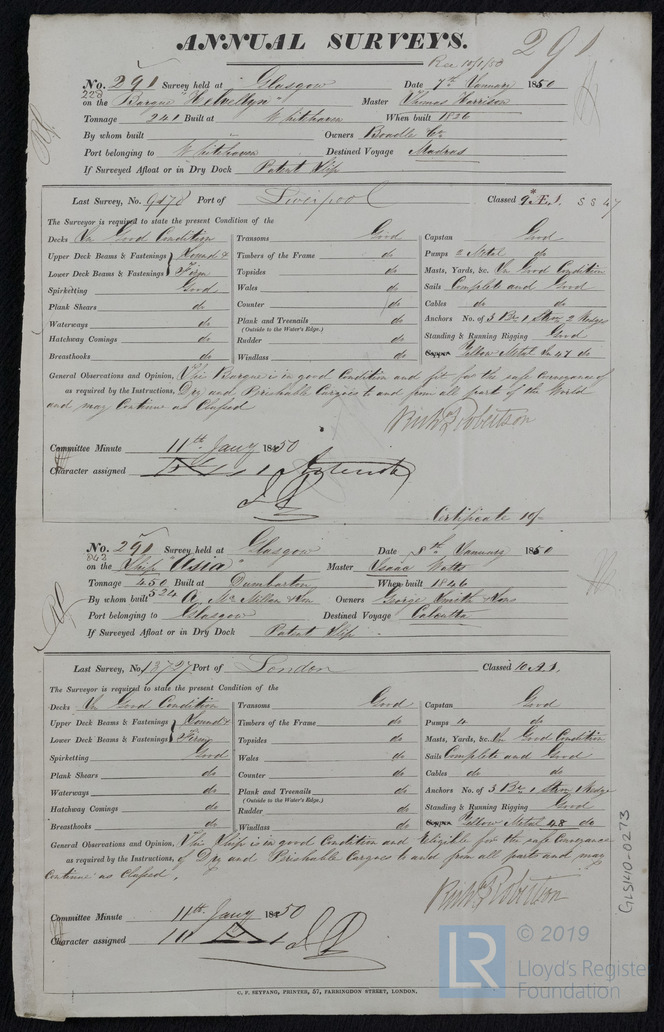 ANNUAL SURVEYS.
291
Rec 10/1/50
No. 291 Survey held at Glasgow Date 7th January 1850
228 on the Barque "Helvellyn" Master Thomas Harrison
Tonnage 241 Built at Whitehaven When built 1826
By whom built " Owners Beadle & Co
Port belonging to Whitehaven Destined Voyage Madras
If Surveyed Afloat or in Dry Dock Patent Slip
Last Survey, No. 9478 Port of Liverpool Classed * Æ. 1. SS 47
The Surveyor is required to state the present Condition of the
Decks In Good Condition Transoms Good Capstan Good
Upper Deck Beams & Fastenings Sound & Timbers of the Frame do Pumps 2 Metal do
Lower Deck Beams & Fastenings Firm Topsides do Masts, Yards, &c. In Good Condition
Spirketting Good Wales do Sails Complete and Good
Plank Shears do Counter do Cables do do
Waterways do Plank and Treenails do Anchors No. of 3 Br 1 Strm 2 Kedges
(Outside to the Water's Edge.)
Hatchway Comings do Rudder do Standing & Running Rigging Good
Breasthooks do Windlass do Copper Yellow Metal In 47 do
General Observations and Opinion, This Barque is in good Condition and fit for the safe Conveyance of
as required by the Instructions, Dry and Perishable Cargoes to and from all part of the World
and may Continue as Classed
Committee Minute 11th Jany 1850
Character assigned
Certificate 10/-
No. 291 Survey held at Glasgow Date 8th January 1850
842 on the Ship "Asia" Master Isaac Watts
Tonnage 450 Built at Dumbarton When built 1846
524
By whom built A. McMillan & Son Owners George Smith & Sons
Port belonging to Glasgow Destined Voyage Calcutta
If Surveyed Afloat or in Dry Dock Patent Slip
Last Survey, No. 13727 Port of London Classed 10 A.1.
The Surveyor is required to state the present Condition of the
Decks In Good Condition Transoms Good Capstan Good
Upper Deck Beams & Fastenings Sound & Timbers of the Frame do Pumps 4 do
Lower Deck Beams & Fastenings Firm Topsides do Masts, Yards, &c. In Good Condition
Spirketting Good Wales do Sails Complete and Good
Plank Shears do Counter do Cables do do
Waterways do Plank and Treenails do Anchors No. of 3 Br 1 Strm 1 Kedge
(Outside to the Water's Edge.)
Hatchway Comings do Rudder do Standing & Running Rigging Good
Breasthooks do Windlass do Copper Yellow Metal 48 do
General Observations and Opinion, This Ship is in good Condition and Eligible for the safe Conveyance
as required by the Instructions, of Dry and Perishable Cargoes to and from all parts and may
Continue as Classed.
Committee Minute 11th Jany 1850
Character assigned 10 A 1
GLS140-0273
© 2019
LR
Lloyd's Register
Foundation
C. F. SEYFANG, PRINTER, 57, FARRINGDON STREET, LONDON.